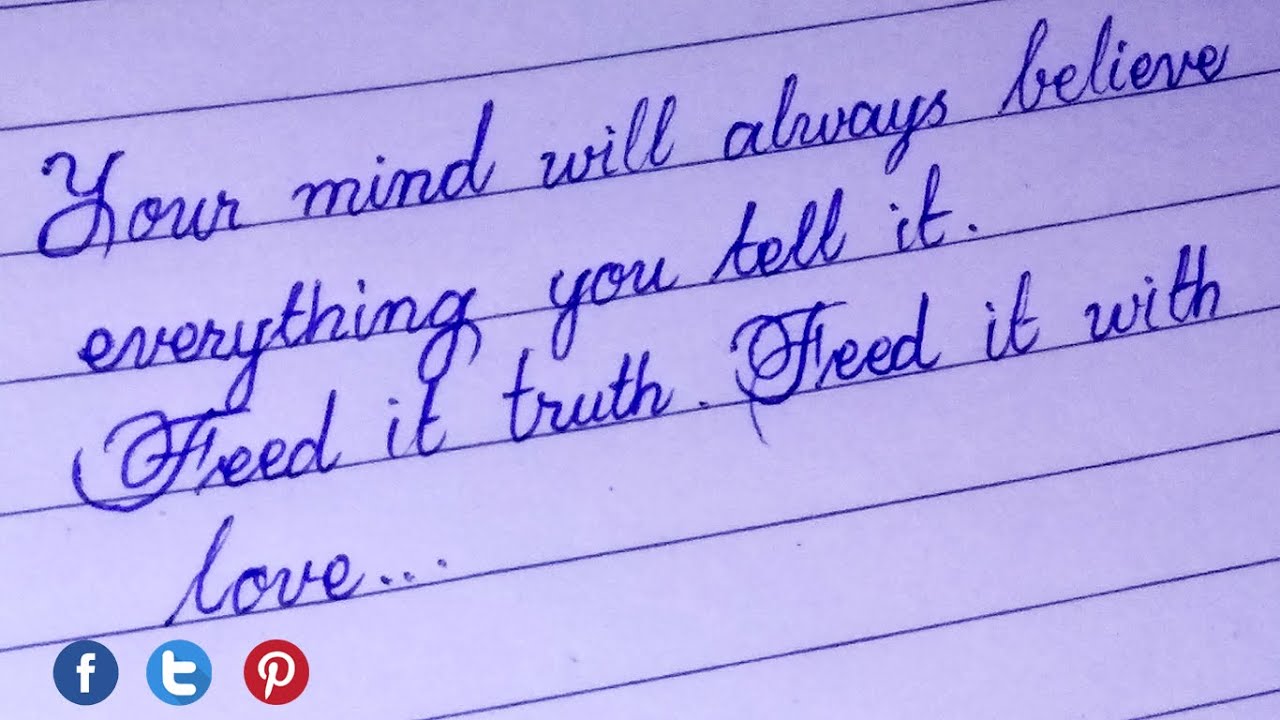 Your mind will always believe
everything you tell it.
Feed it truth. Feed it with
love...